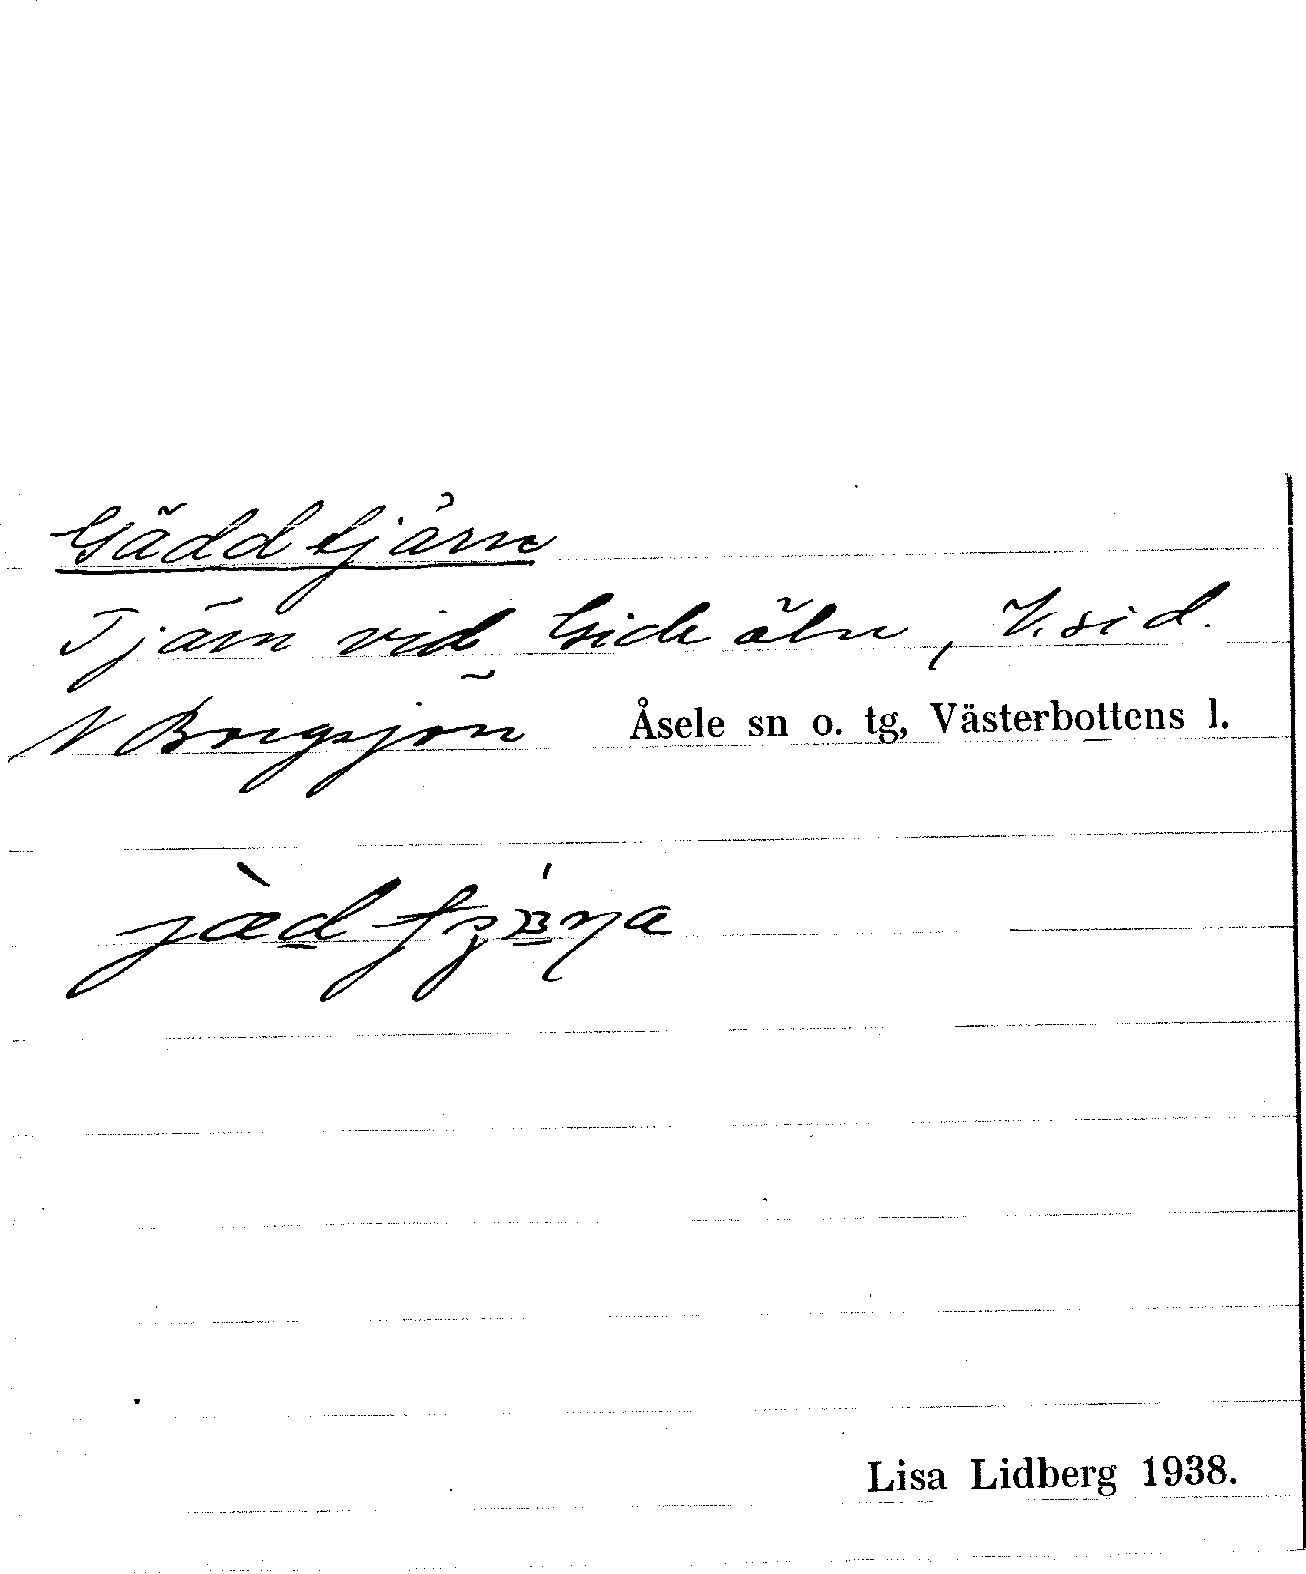 Gäddtjärn
Tjärn vid Gideälvn, V. sid.
N Borgsjön Åsele sn o. tg, Västerbottens l.
Lisa Lidberg 1938.